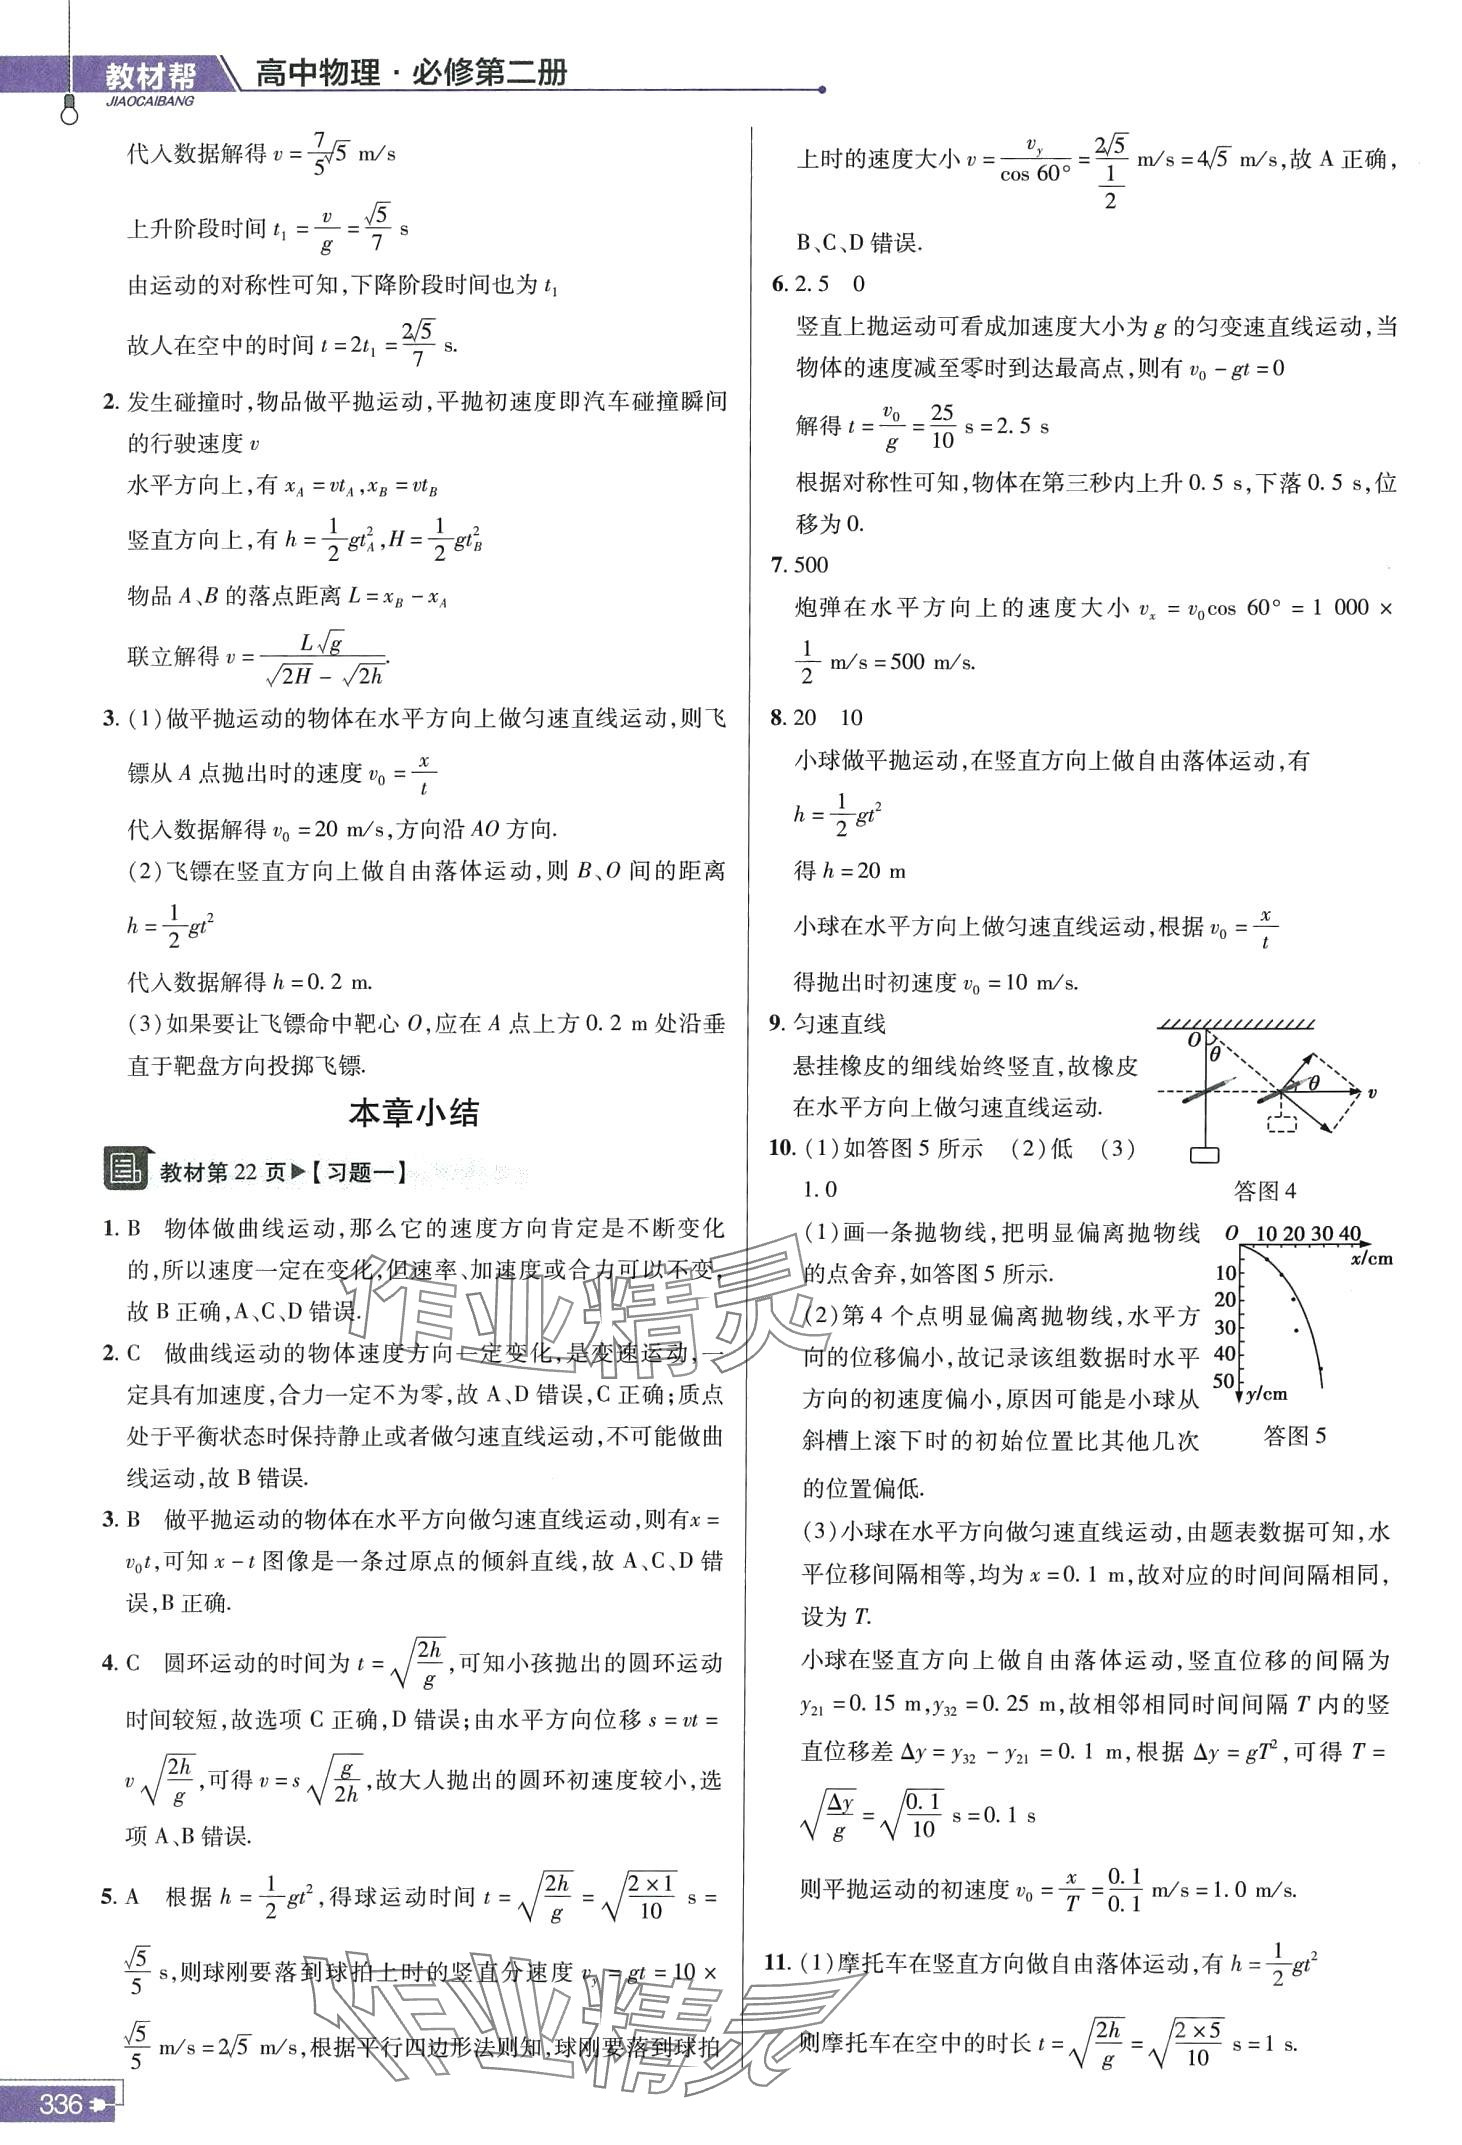 教材帮
JIAOCAIBANG
高中物理·必修第二册
代入数据解得 v = 7/5 √5 m/s
上升阶段时间 t₁ = v/g = √5/7 s
由运动的对称性可知,下降阶段时间也为 t₁
故人在空中的时间 t = 2t₁ = 2√5/7 s.
2. 发生碰撞时,物品做平抛运动,平抛初速度即汽车碰撞瞬间
的行驶速度 v
水平方向上,有 x_A = vt_A, x_B = vt_B
竖直方向上,有 h = 1/2 gt_A², H = 1/2 gt_B²
物品 A、B 的落点距离 L = x_B - x_A
联立解得 v = L√g/(√2H - √2h).
3. (1)做平抛运动的物体在水平方向上做匀速直线运动,则飞
镖从 A 点抛出时的速度 v₀ = x/t
代入数据解得 v₀ = 20 m/s,方向沿 AO 方向.
(2)飞镖在竖直方向上做自由落体运动,则 B、O 间的距离
h = 1/2 gt²
代入数据解得 h = 0.2 m.
(3)如果要让飞镖命中靶心 O,应在 A 点上方 0.2 m 处沿垂
直于靶盘方向投掷飞镖.
本章小结
教材第 22 页▶【习题一】
1. B 物体做曲线运动,那么它的速度方向肯定是不断变化
的,所以速度一定在变化,但速率、加速度或合力可以不变,
故 B 正确,A、C、D 错误.
2. C 做曲线运动的物体速度方向一定变化,是变速运动,一
定具有加速度,合力一定不为零,故 A、D 错误,C 正确;质点
处于平衡状态时保持静止或者做匀速直线运动,不可能做曲
线运动,故 B 错误.
3. B 做平抛运动的物体在水平方向做匀速直线运动,则有 x =
v₀t,可知 x - t 图像是一条过原点的倾斜直线,故 A、C、D 错
误,B 正确.
4. C 圆环运动的时间为 t = √(2h/g),可知小孩抛出的圆环运动
时间较短,故选项 C 正确,D 错误;由水平方向位移 s = vt =
v√(2h/g),可得 v = s√(g/2h),故大人抛出的圆环初速度较小,选
项 A、B 错误.
5. A 根据 h = 1/2 gt²,得球运动时间 t = √(2h/g) = √(2×1/10) s =
√5/5 s,则球刚要落到球拍上时的竖直分速度 v_y = gt = 10 ×
√5/5 m/s = 2√5 m/s,根据平行四边形法则知,球刚要落到球拍
上时的速度大小 v = v_y/cos 60° = 2√5/(1/2) m/s = 4√5 m/s,故 A 正确,
B、C、D 错误.
6. 2.5 0
竖直上抛运动可看成加速度大小为 g 的匀变速直线运动,当
物体的速度减至零时到达最高点,则有 v₀ - gt = 0
解得 t = v₀/g = 25/10 s = 2.5 s
根据对称性可知,物体在第三秒内上升 0.5 s,下落 0.5 s,位
移为 0.
7. 500
炮弹在水平方向上的速度大小 v_x = v₀cos 60° = 1 000 ×
1/2 m/s = 500 m/s.
8. 20 10
小球做平抛运动,在竖直方向上做自由落体运动,有
h = 1/2 gt²
得 h = 20 m
小球在水平方向上做匀速直线运动,根据 v₀ = x/t
得抛出时初速度 v₀ = 10 m/s.
9. 匀速直线
悬挂橡皮的细线始终竖直,故橡皮
在水平方向上做匀速直线运动.
O θ θ v
答图 4
10. (1)如答图 5 所示 (2)低 (3)
1.0
(1)画一条抛物线,把明显偏离抛物线
的点舍弃,如答图 5 所示.
(2)第 4 个点明显偏离抛物线,水平方
向的位移偏小,故记录该组数据时水平
方向的初速度偏小,原因可能是小球从
斜槽上滚下时的初始位置比其他几次
的位置偏低.
O 10 20 30 40
x/cm
10
20
30
40
50
y/cm
答图 5
(3)小球在水平方向做匀速直线运动,由题表数据可知,水
平位移间隔相等,均为 x = 0.1 m,故对应的时间间隔相同,
设为 T.
小球在竖直方向上做自由落体运动,竖直位移的间隔为
y₂₁ = 0.15 m, y₃₂ = 0.25 m,故相邻相同时间间隔 T 内的竖
直位移差 Δy = y₃₂ - y₂₁ = 0.1 m,根据 Δy = gT²,可得 T =
√(Δy/g) = √(0.1/10) s = 0.1 s
则平抛运动的初速度 v₀ = x/T = 0.1/0.1 m/s = 1.0 m/s.
11. (1)摩托车在竖直方向做自由落体运动,有 h = 1/2 gt²
则摩托车在空中的时长 t = √(2h/g) = √(2×5/10) s = 1 s.
作业精灵
作业精灵
336